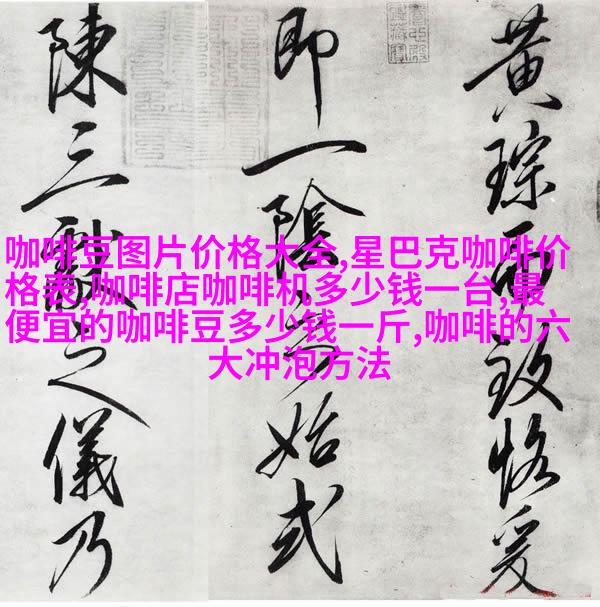 黄琮而致恪爰
即一陰之始式
陳三獻之儀乃
咖啡豆图片价格大全,星巴克咖啡价
格表,咖啡店咖啡机多少钱一台,最
便宜的咖啡豆多少钱一斤,咖啡的六
大冲泡方法